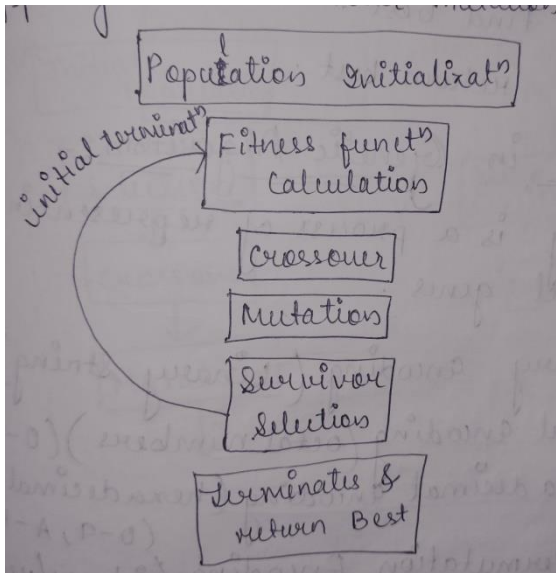 Population Initializatn
initial terminatn
Fitness functn
Calculation
Crossover
Mutation
Survivor
Selection
Terminates &
return Best